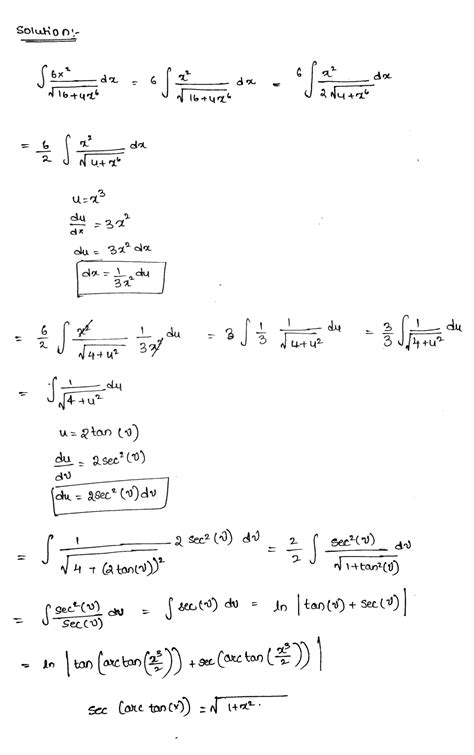 Solution:-
∫ 6x²/√(16+4x⁶) dx = 6 ∫ x²/√(16+4x⁶) dx = 6 ∫ x²/(2√(4+x⁶)) dx
= 6/2 ∫ x²/√(4+x⁶) dx
u=x³
du/dx = 3x²
du = 3x² dx
dx = 1/3x² du
= 6/2 ∫ x²/√(4+u²) 1/3x² du = 3 ∫ 1/3 1/√(4+u²) du = 3/3 ∫ 1/√(4+u²) du
= ∫ 1/√(4+u²) du
u = 2tan(v)
du/dv = 2sec²(v)
du = 2sec²(v)dv
= ∫ 1/√(4+(2tan(v))²) 2 sec²(v) dv = 2/2 ∫ sec²(v)/√(1+tan²(v)) dv
= ∫ sec²(v)/sec(v) dv = ∫ sec(v) dv = ln |tan(v) + sec(v)|
= ln |tan(arctan(x³/2)) + sec(arctan(x³/2))|
sec (arc tan(x)) = √(1+x²).